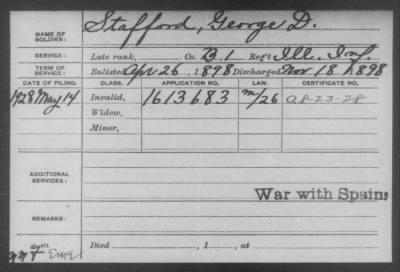 NAME OF SOLDIER: Stafford, George D.
SERVICE: Late rank, Co. B. 1 Reg't Ill. Inf.
TERM OF SERVICE: Enlisted Apr 26, 1898 Discharged Nov 18, 1898
DATE OF FILING. CLASS. APPLICATION NO. LAW. CERTIFICATE NO.
1928 May 14 Invalid, 1613683 m/26 a 8-23-28
Widow,
Minor,
ADDITIONAL SERVICES:
War with Spain
REMARKS:
Died , 1 , at